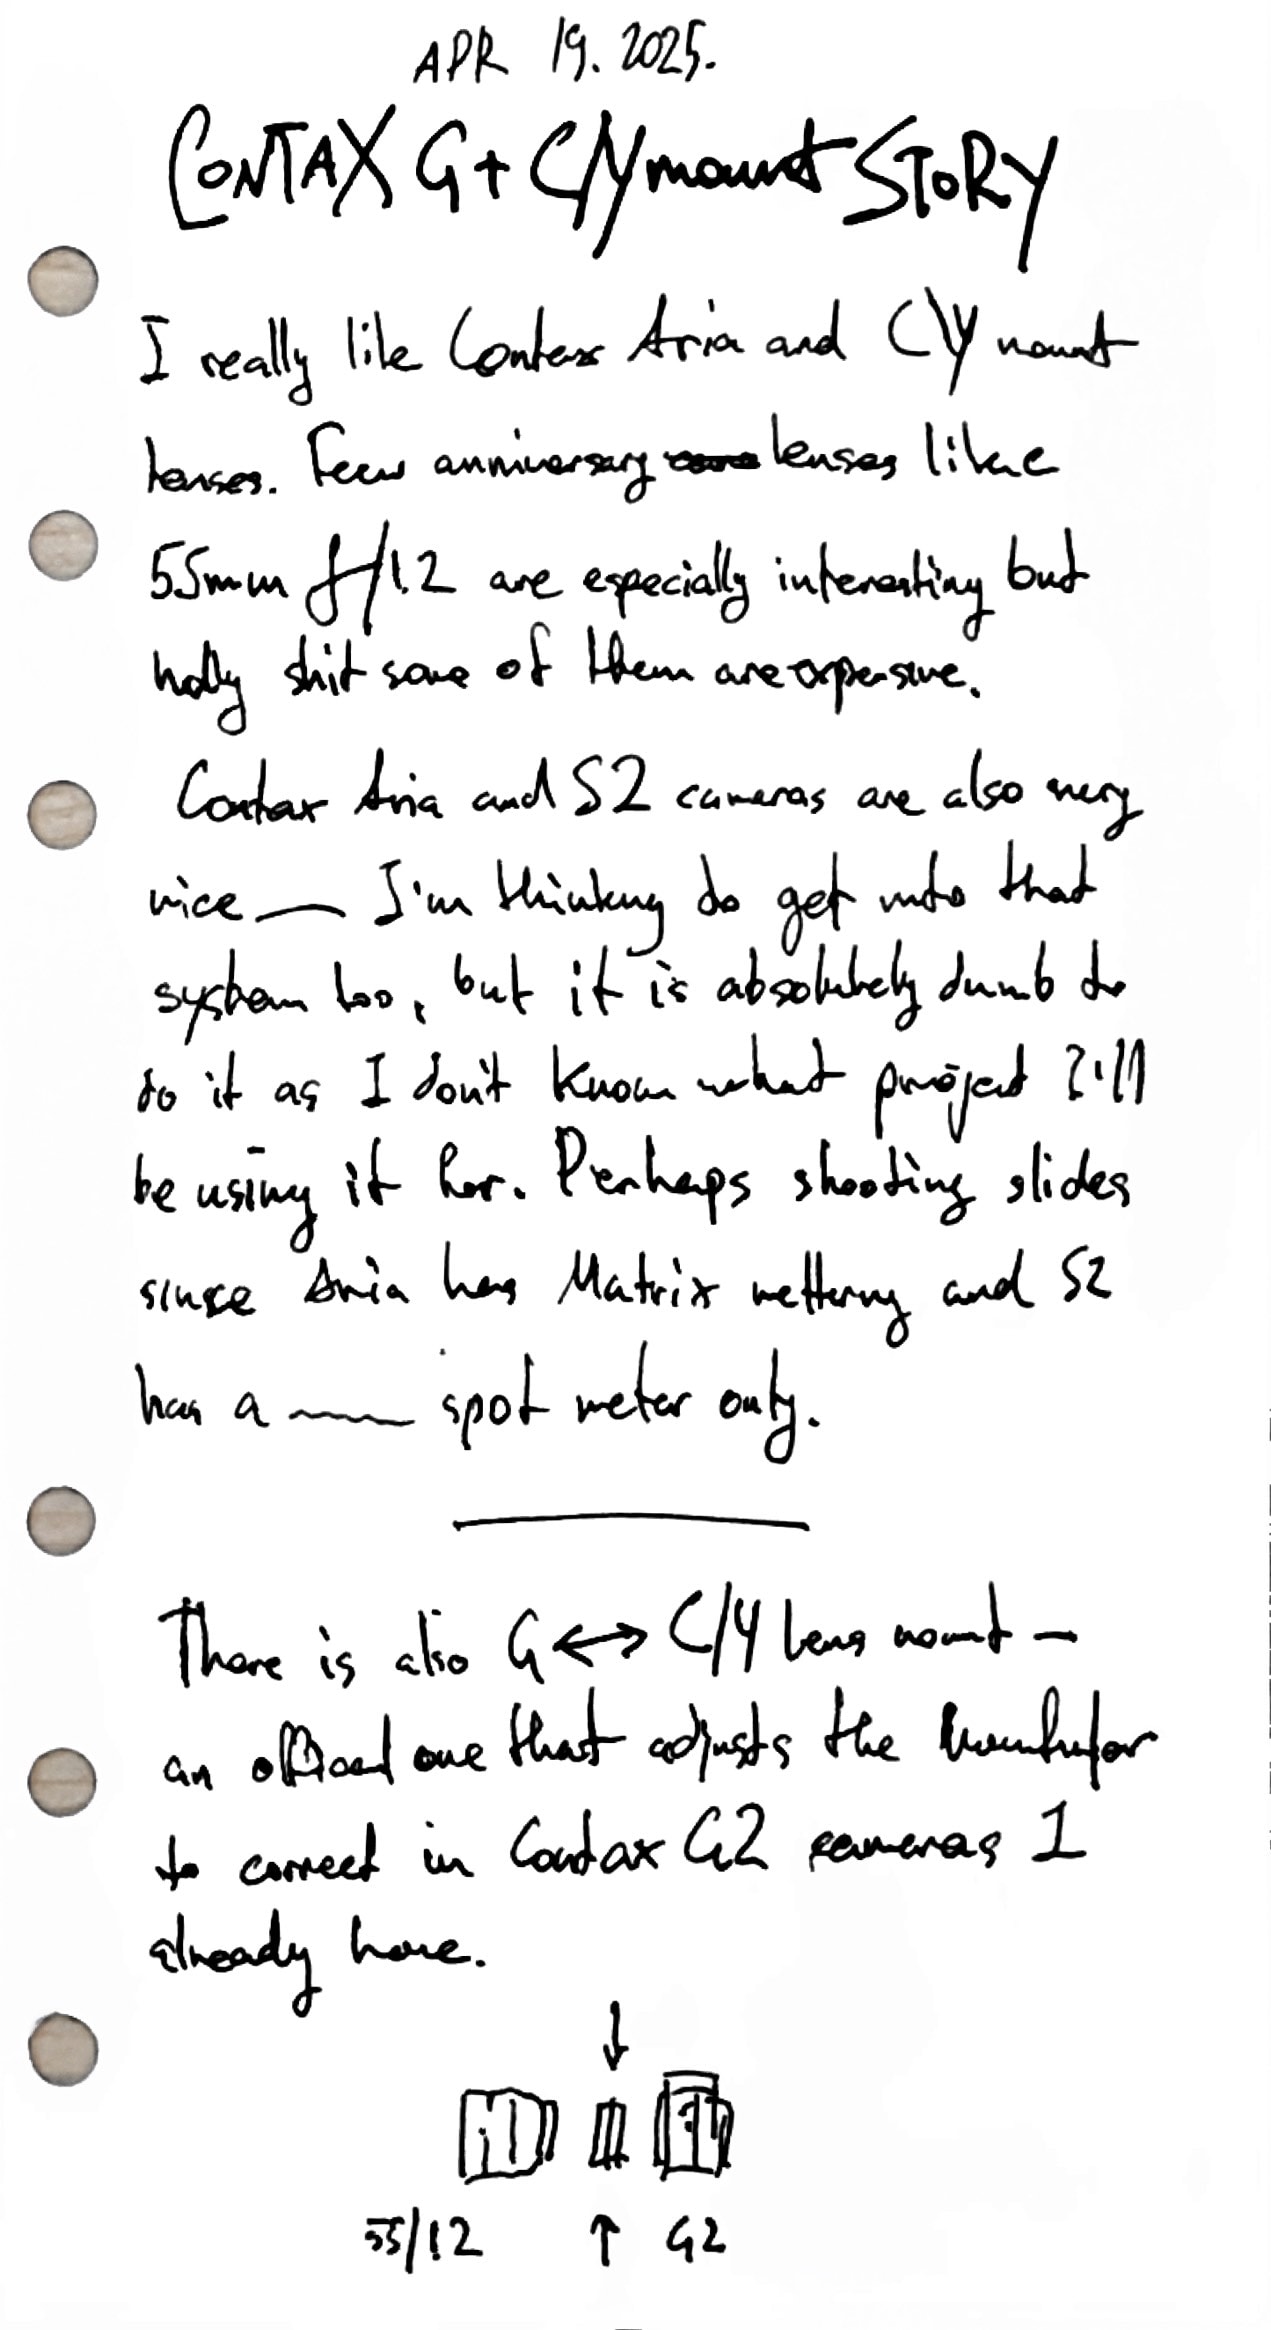 APR 19. 2025.
CONTAX G + C/Y mount STORY
I really like Contax Aria and C\Y mount
lenses. Few anniversary lenses like
55mm f/1.2 are especially interesting but
holly shit some of them are expensive.
Contax Aria and S2 cameras are also very
nice — I'm thinking to get into that
system too, but it is absolutely dumb to
do it as I don't know what project I'll
be using it for. Perhaps shooting slides
since Aria has Matrix mettering and S2
has a — spot meter only.
There is also G ↔ C/Y lens mount —
an official one that adjusts the
to correct in Contax G2 cameras I
already have.
↓
55/1.2 ↑ G2